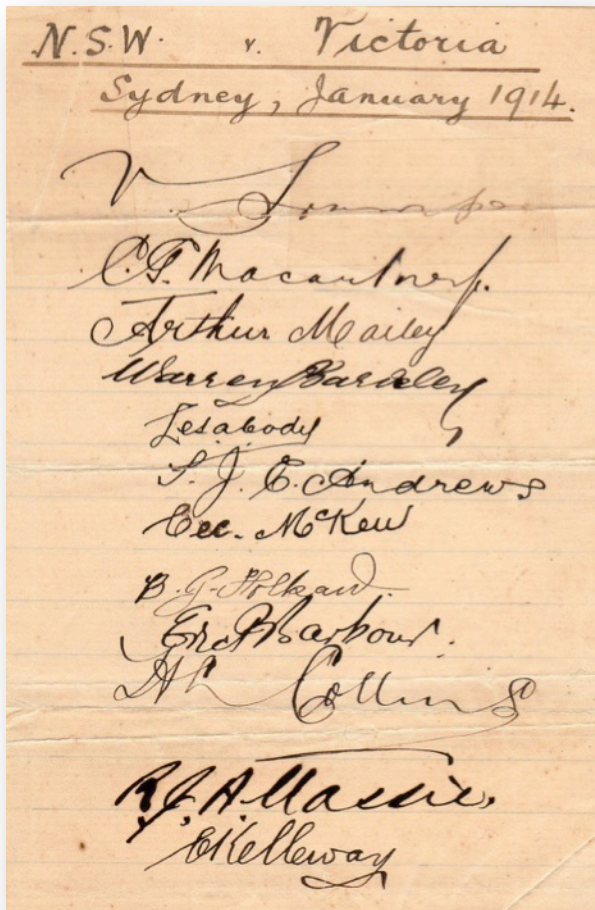 N.S.W. v. Victoria
Sydney, January 1914.
V.
C.G. Macartney.
Arthur Mailey
Warren Bardsley
Les. Cody
T. J. E. Andrews
Cec. McKew
B. G. Folkard.
Eric P Barbour.
H L Collins
R. J. A. Massie.
C Kelleway